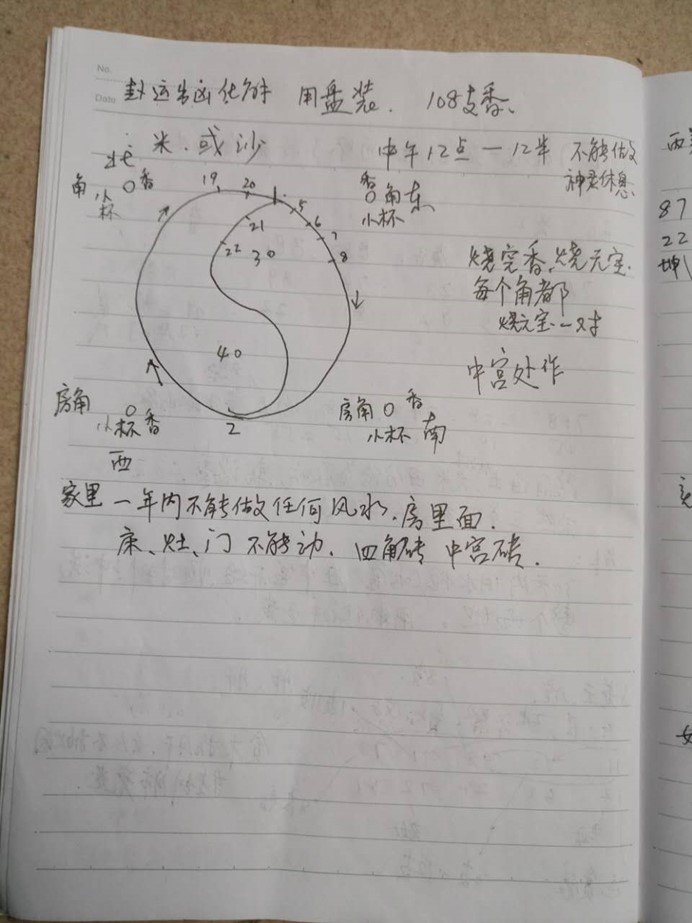 No.
Date
卦运出凶化解 用盘装. 108支香、
米.或沙 中午12点一12半 不能做
神灵休息
北
角 小杯 香
19 20 1 5 6 7 8
21
22 30
香 角 东
小杯
烧完香、烧元宝.
每个角都
烧元宝一对
40
中宫处作
房角 小杯 香
西
2
房角 香
小杯 南
家里一年内不能做任何风水.房里面.
床、灶、门 不能动. 四角砖 中宫砖.
87
22
坤